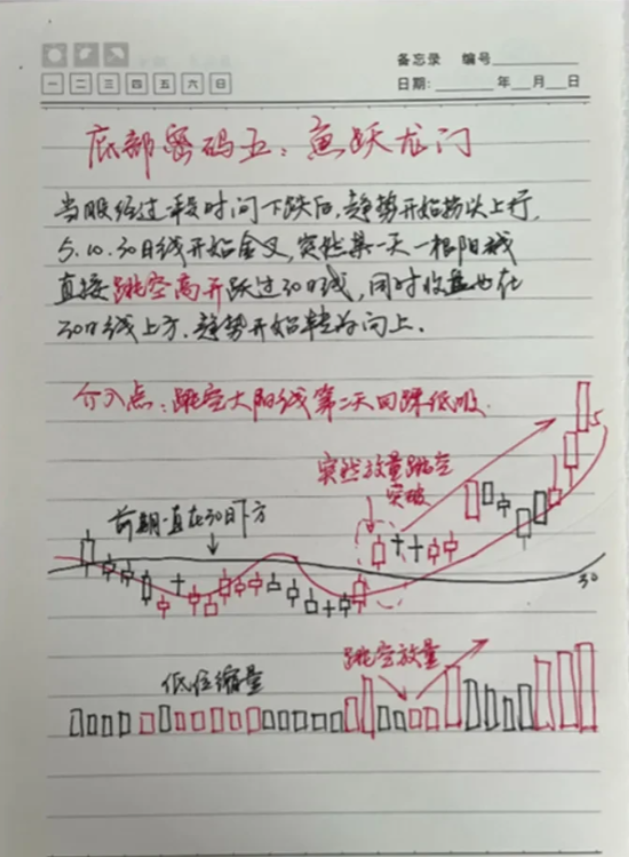 备忘录 编号
一 二 三 四 五 六 日
日期: 年 月 日
底部密码五：鱼跃龙门
当股经过一段时间下跌后,趋势开始拐头上行,
5.10.30日线开始金叉,突然某一天一根阳线
直接跳空高开跃过30日线,同时收盘也在
30日线上方.趋势开始转为向上.
介入点:跳空大阳线第二天回踩低吸.
突然放量跳空
突破
前期一直在30日下方
5
30
跳空放量
低位缩量